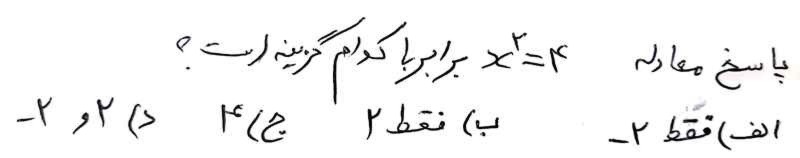 پاسخ معادله x²=۴ برابر با کدام گزینه است ؟
الف) فقط ۲- ب) فقط ۲ ج) ۴ د) ۲ و ۲-